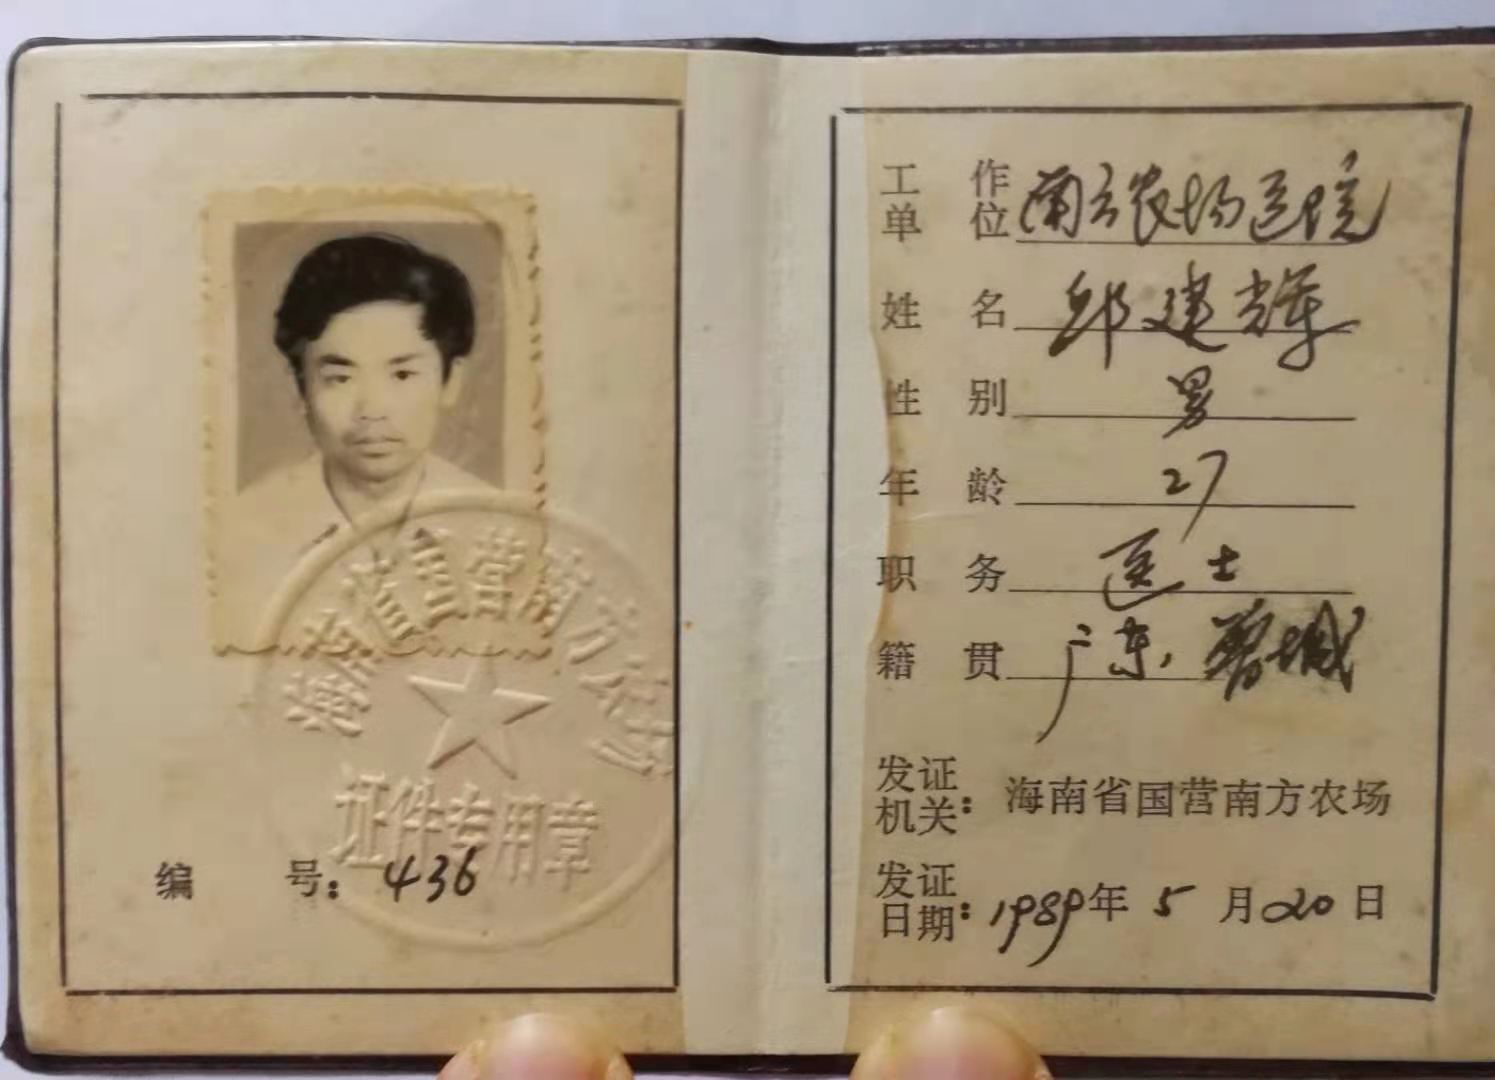 海南省国营南方农场
证件专用章
编号：436
工作单位 南方农场医院
姓名 邱建辉
性别 男
年龄 27
职务 医士
籍贯 广东，增城
发证机关：海南省国营南方农场
发证日期：1989年5月20日